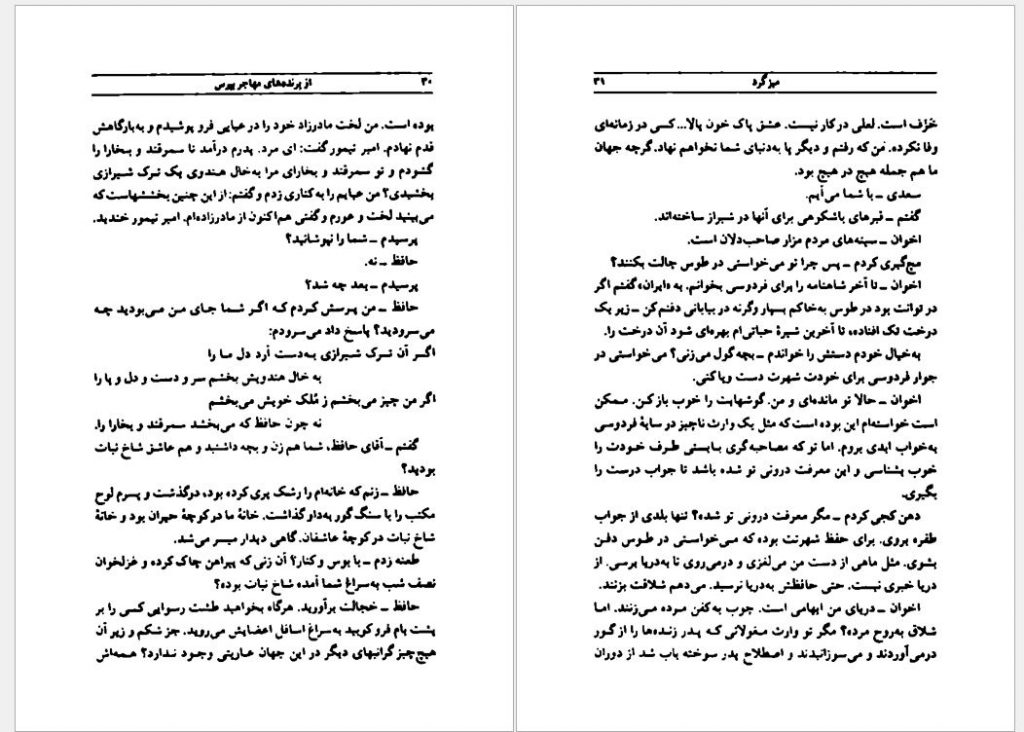 ۳۰ از پرنده‌های مهاجر بپرس
بوده است. من لخت مادرزاد خود را در عبایی فرو پوشیدم و به‌بارگاهش
قدم نهادم. امیر تیمور گفت: ای مرد. پدرم درآمد تا سمرقند و بخارا را
گشودم و تو سمرقند و بخارای مرا به‌خال هندوی یک ترک شیرازی
بخشیدی؟ من عبایم را به‌کناری زدم و گفتم: از این چنین بخششهاست که
می‌بینید لخت و عورم و گفتی هم‌اکنون از مادرزاده‌ام. امیر تیمور خندید.
پرسیدم ــ شما را نپوشانید؟
حافظ ــ نه.
پرسیدم ــ بعد چه شد؟
حافظ ــ من پرسش کردم که اگر شما جای من می‌بودید چه
می‌سرودید؟ پاسخ داد می‌سرودم:
اگر آن ترک شیرازی به‌دست آرد دل ما را
به خال هندویش بخشم سر و دست و دل و پا را
اگر من چیز می‌بخشم ز مُلک خویش می‌بخشم
نه چون حافظ که می‌بخشد سمرقند و بخارا را.
گفتم ــ آقای حافظ، شما هم زن و بچه داشتید و هم عاشق شاخ نبات
بودید؟
حافظ ــ زنم که خانه‌ام را رشک پری کرده بود، درگذشت و پسرم لوح
مکتب را با سنگ گور به‌داو گذاشت. خانهٔ ما در کوچهٔ حیران بود و خانهٔ
شاخ نبات در کوچهٔ عاشقان. گاهی دیدار میسر می‌شد.
طعنه زدم ــ با بوس و کنار؟ آن زنی که پیراهن چاک کرده و غزلخوان
نصف شب به‌سراغ شما آمده شاخ نبات بوده؟
حافظ ــ خجالت برآورید. هرگاه بخواهید طشت رسوایی کسی را بر
پشت بام فرو کوبید به‌سراغ اسافل اعضایش می‌روید. جز شکم و زیر آن
هیچ‌چیز گرانبهای دیگر در این جهان عاریتی وجود ندارد؟ همه‌اش
میز گرد ۳۱
خَزَف است. لعلی در کار نیست. عشق پاک خون پالا... کسی در زمانه‌ای
وفا نکرده. من که رفتم و دیگر پا به‌دنیای شما نخواهم نهاد. گرچه جهان
ما هم جمله هیچ در هیچ بود.
سعدی ــ با شما می‌آیم.
گفتم ــ قبرهای باشکوهی برای آنها در شیراز ساخته‌اند.
اخوان ــ سینه‌های مردم مزار صاحب‌دلان است.
مچ‌گیری کردم ــ پس چرا تو می‌خواستی در طوس چالت بکنند؟
اخوان ــ تا آخر شاهنامه را برای فردوسی بخوانم. به «ایران» گفتم اگر
در توانت بود در طوس به‌خاکم بسپار وگرنه در بیابانی دفنم کن ــ زیر یک
درخت تک افتاده، تا آخرین شیرهٔ حیاتی‌ام بهره‌ای شود آن درخت را.
به‌خیال خودم دستش را خواندم ــ بچه گول می‌زنی؟ می‌خواستی در
جوار فردوسی برای خودت شهرت دست وپا کنی.
اخوان ــ حالا تو مانده‌ای و من. گوشهایت را خوب باز کن. ممکن
است خواسته‌ام این بوده است که مثل یک وارث ناچیز در سایهٔ فردوسی
به‌خواب ابدی بروم. اما تو که مصاحبه‌گری بایستی طرف خودت را
خوب بشناسی و این معرفت درونی تو شده باشد تا جواب درست را
بگیری.
دهن کجی کردم ــ مگر معرفت درونی تو شده؟ تنها بلدی از جواب
طفره بروی. برای حفظ شهرتت بوده که می‌خواستی در طوس دفن
بشوی. مثل ماهی از دست من می‌لغزی و درمی‌روی تا به‌دریا برسی. از
دریا خبری نیست. حتی حافظش به‌دریا نرسید. می‌دهم شلاقت بزنند.
اخوان ــ دریای من ابهامی است. چوب به‌کفن مرده می‌زنند. اما
شلاق به‌روح مرده؟ مگر تو وارث مغولانی که پدر زنده‌ها را از گور
درمی‌آوردند و می‌سوزانیدند و اصطلاح پدر سوخته باب شد از دوران